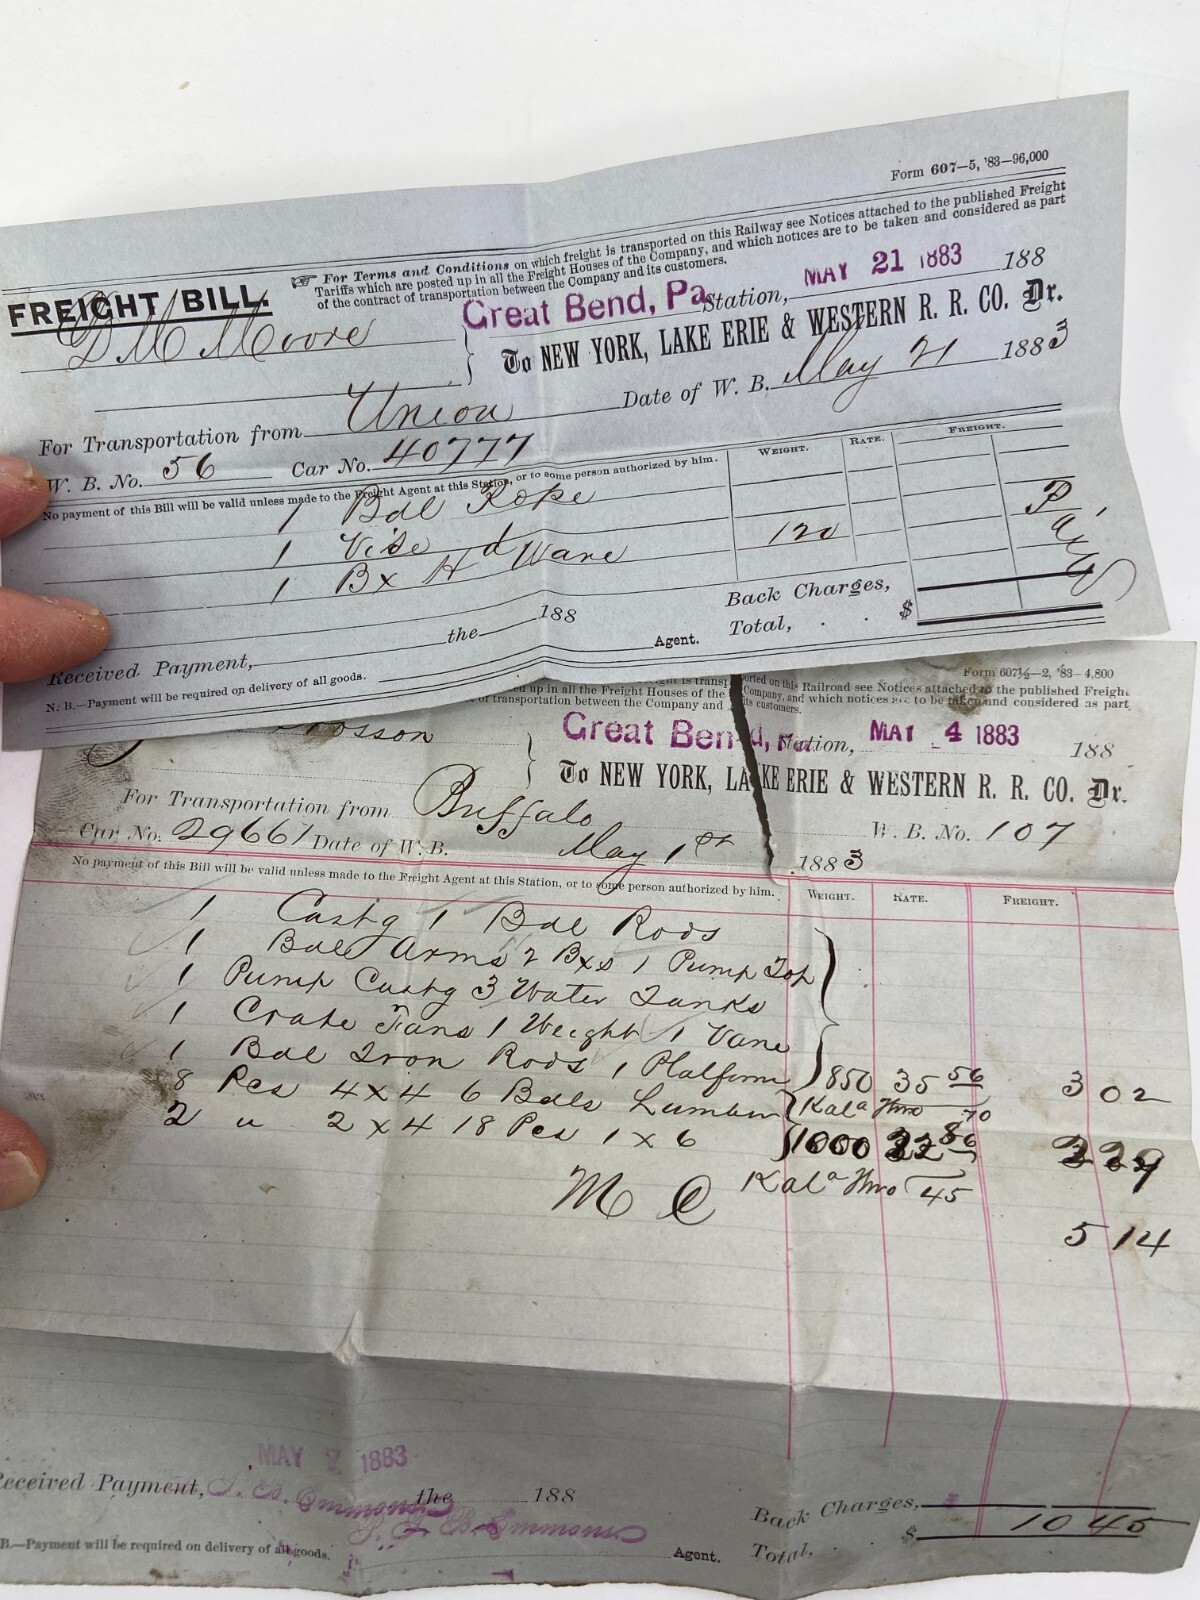 Form 607—5, '83—96,000
☞ For Terms and Conditions on which freight is transported on this Railway see Notices attached to the published Freight
Tariffs which are posted up in all the Freight Houses of the Company, and which notices are to be taken and considered as part
of the contract of transportation between the Company and its customers.
FREIGHT BILL.
Great Bend, Pa. Station, MAY 21 1883 188
D M Moore
To NEW YORK, LAKE ERIE & WESTERN R. R. CO. Dr.
For Transportation from Union Date of W. B. May 21 1883
W. B. No. 56 Car No. 40777
No payment of this Bill will be valid unless made to the Freight Agent at this Station, or to some person authorized by him. WEIGHT. RATE. FREIGHT.
1 Bdl Rope
1 Vise
1 Bx H d Ware 120 Paid
Back Charges,
Received Payment, the 188 Agent. Total, . . $
N. B.—Payment will be required on delivery of all goods.
Form 607½—2, '83—4,800
ported on this Railroad see Notices attached to the published Freight
ed up in all the Freight Houses of the Company, and which notices are to be taken and considered as part
of transportation between the Company and its customers.
osson
Great Bend, Pa. Station, MAY 4 1883 188
To NEW YORK, LAKE ERIE & WESTERN R. R. CO. Dr.
For Transportation from Buffalo W. B. No. 107
Car No. 29661 Date of W. B. May 1st 1883
No payment of this Bill will be valid unless made to the Freight Agent at this Station, or to some person authorized by him. WEIGHT. RATE. FREIGHT.
1 Castg 1 Bdl Rods
1 Bdl Arms 2 Bxs 1 Pump Top
1 Pump Castg 3 Water Tanks
1 Crate Fans 1 Weight 1 Vane
1 Bdl Iron Rods 1 Platform 850 35 56 3 02
8 Pcs 4 x 4 6 Bdls Lumber Kala Thro 70
2 " 2 x 4 18 Pcs 1 x 6 1000 22 86 2 29
M C Kala Thro 45
5 14
MAY 7 1883
Received Payment, the 188
Back Charges,
$ 10 45
Total. . .
B.—Payment will be required on delivery of all goods. Agent.